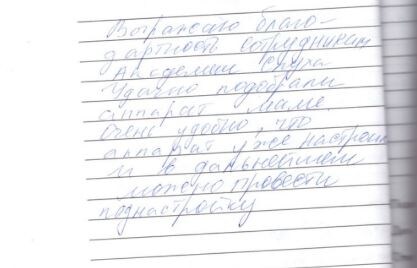 Выражаю благо-
дарность сотрудникам
Академии слуха
Удачно подобрали
аппарат маме.
Очень удобно, что
аппарат уже настроен
и в дальнейшем
можно провести
поднастройку